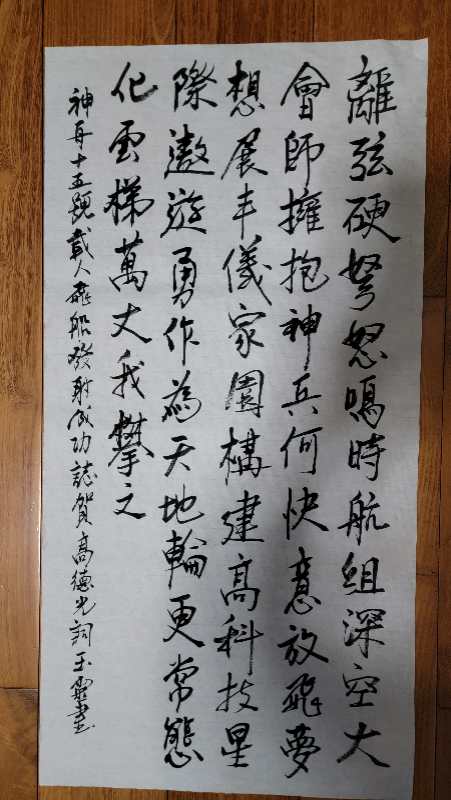 離弦硬弩怒鳴時航組深空大
會師擁抱神兵何快意放飛夢
想展丰儀家園構建高科技星
際遨遊勇作為天地輪更常態
化雲梯萬丈我攀之
神舟十五號載人飛船發射成功誌賀高德光詞玉靈書